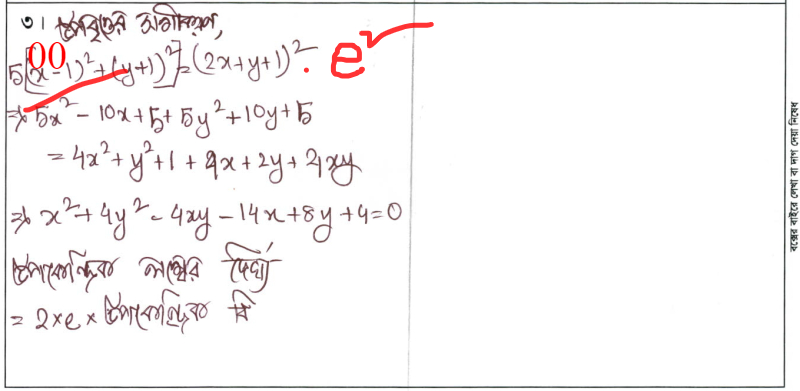 ৩। উপবৃত্তের সমীকরণ,
00
5[(x-1)²+(y+1)²]=(2x+y+1)² . e²
⇒ 5x² - 10x + 5 + 5y² + 10y + 5
= 4x² + y² + 1 + 4x + 2y + 4xy
⇒ x² + 4y² - 4xy - 14x + 8y + 4 = 0
উপকেন্দ্রিক লম্বের দৈর্ঘ্য
= 2×e× উপকেন্দ্রিক বি
বক্সের বাইরে লেখা বা দাগ দেয়া নিষেধ